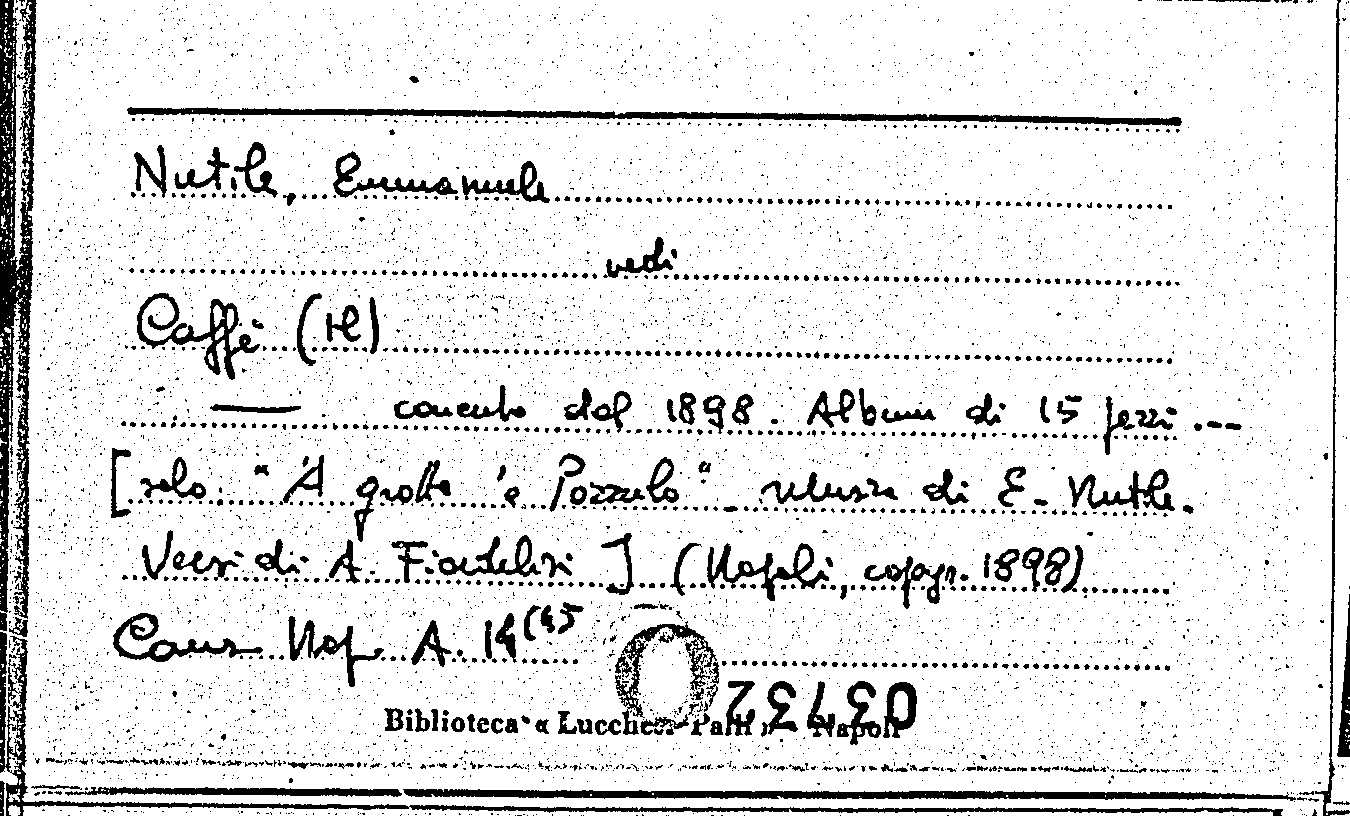 Nutile, Emmanuele
vedi
Caffè (Il)
— concerto del 1898. Album di 15 pezzi ...
[solo "'A grotta 'e Pozzulo" Musica di E. Nutile.
Versi di A. Fiordelisi] (Napoli, copyr. 1898)
Canz. Nap. A. 14(45
Biblioteca « Lucchesi-Palli » - Napoli
03732